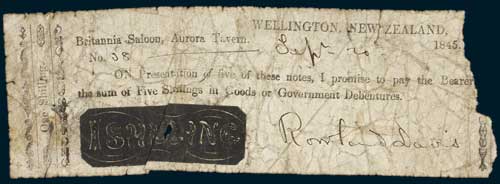 WELLINGTON, NEW ZEALAND,
Britannia Saloon, Aurora Tavern. Sept 20 1845.
No. 38
ON Presentation of five of these notes, I promise to pay the Bearer
the sum of Five Shillings in Goods or Government Debentures.
1 SHILLING
Rowland Davis
One Shilling